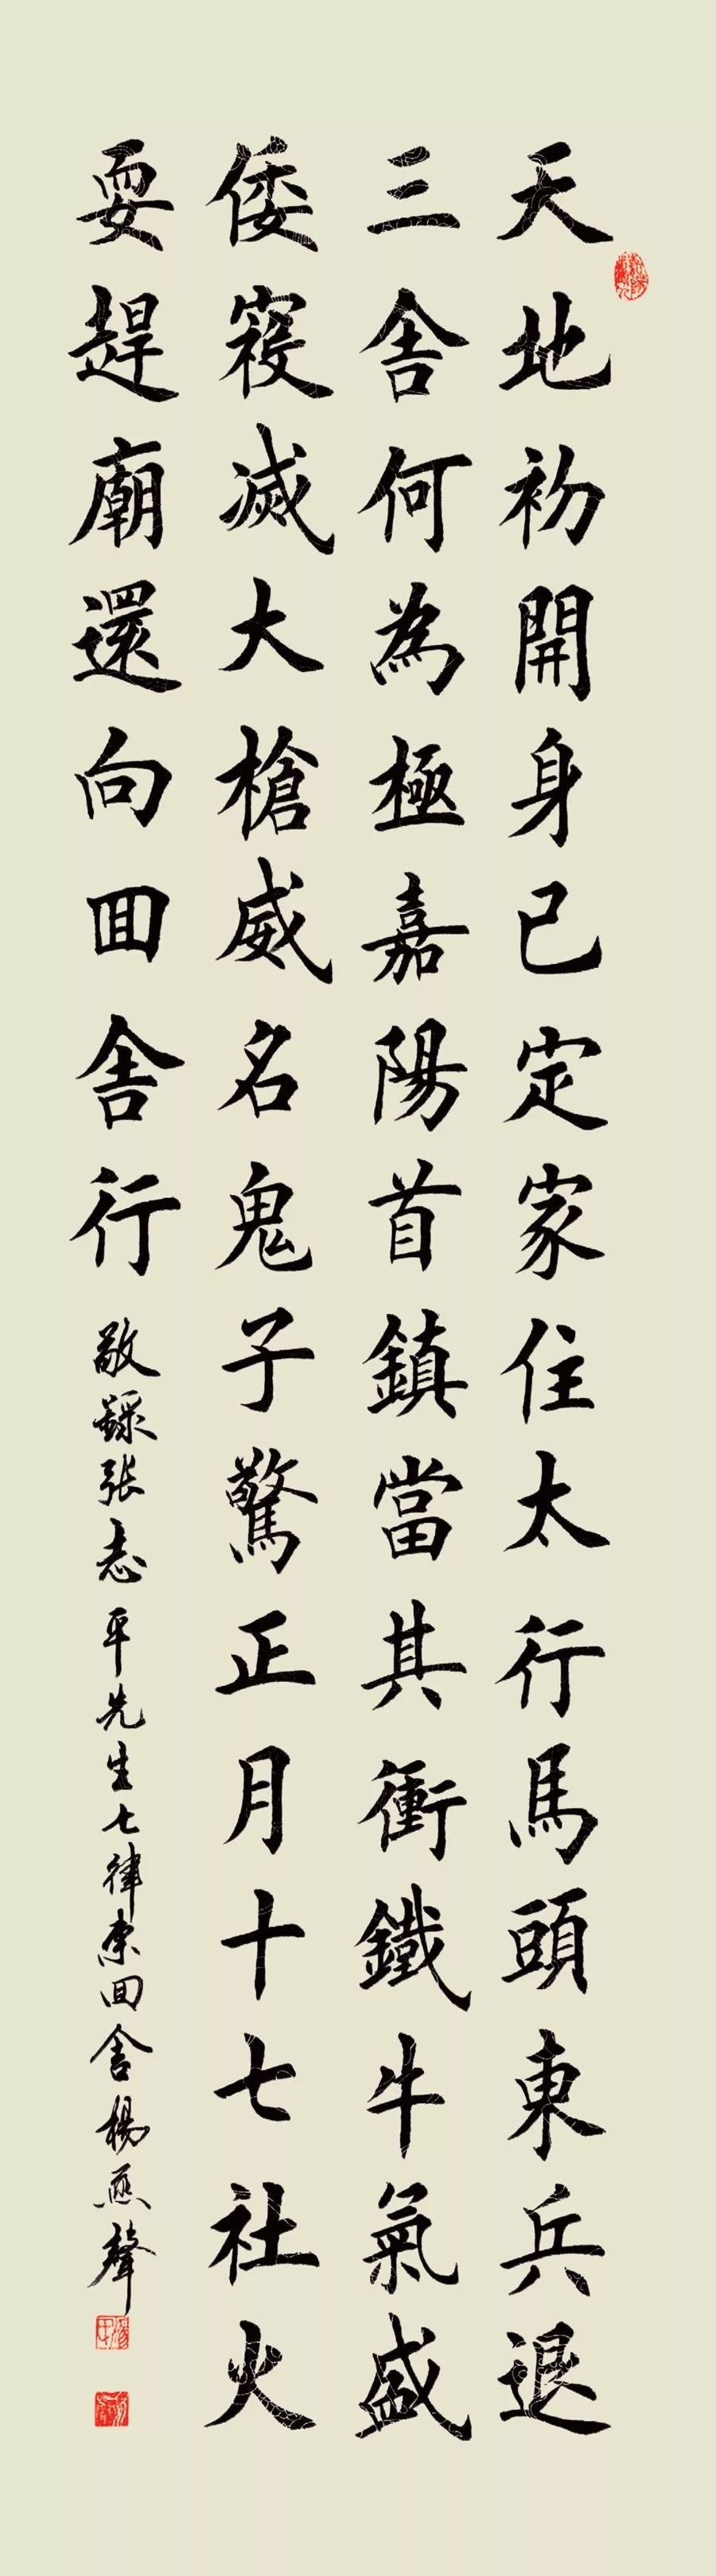 天地初開身已定家住太行馬頭東兵退
三舍何為極嘉陽首鎮當其衝鐵牛氣盛
倭寇滅大槍威名鬼子驚正月十七社火
耍趕廟還向回舍行
敬錄張志平先生七律東回舍楊燕聲